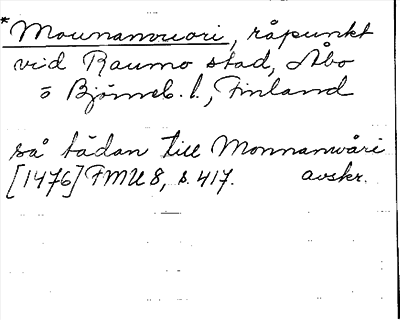 *Mounanvuori, råpunkt
vid Raumo stad, Åbo
o Björneb. l., Finland
så tädan till Monnanwåri
[1476] FMU 8, s. 417. avskr.